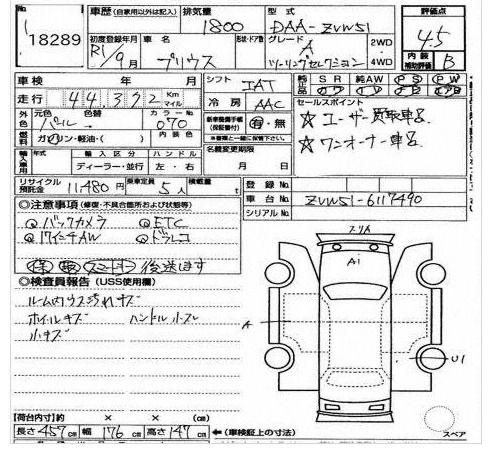 18289
車歴 (自家用以外は記入) 排気量 1800 型式 DAA-ZVW51 評価点 4.5
初度登録年月 R1/9月 車名 プリウス 形状・ドア数 グレード A ツーリングセレクション 2WD 4WD 内装補助評価 B
車検 年 月 シフト IAT 純正品 SR 純AW PS PW
走行 44,392 Km マイル 冷房 AAC セールスポイント
外色 元色 パール 色替 カラーNo. 070 新車整備手帳(保証書付) 有・無 ☆ユーザー買取車
燃料 ガソリン・軽油・( ) 内装色 名義変更期限 月 日 ☆ワンオーナー車
輸入車用 年式 輸入区分 ディーラー・並行 ハンドル 左・右
リサイクル預託金 11480円 乗車定員 5人 積載量 t 登録No.
車台No. ZVW51-6117490
シリアルNo.
◎注意事項 (修復・不具合箇所および状態等)
◎バックカメラ ◎ETC
◎17インチAW ◎ドラレコ
保 取 スマート 後送します
◎検査員報告 (USS使用欄)
ルーム内ウス汚れキズ
ホイールキズ ハンドル小スレ
小キズ
フリA
A1
A
U1
【荷台内寸】約 × × (cm)
長さ 457cm 幅 176cm 高さ 147cm ←(車検証上の寸法) スペア